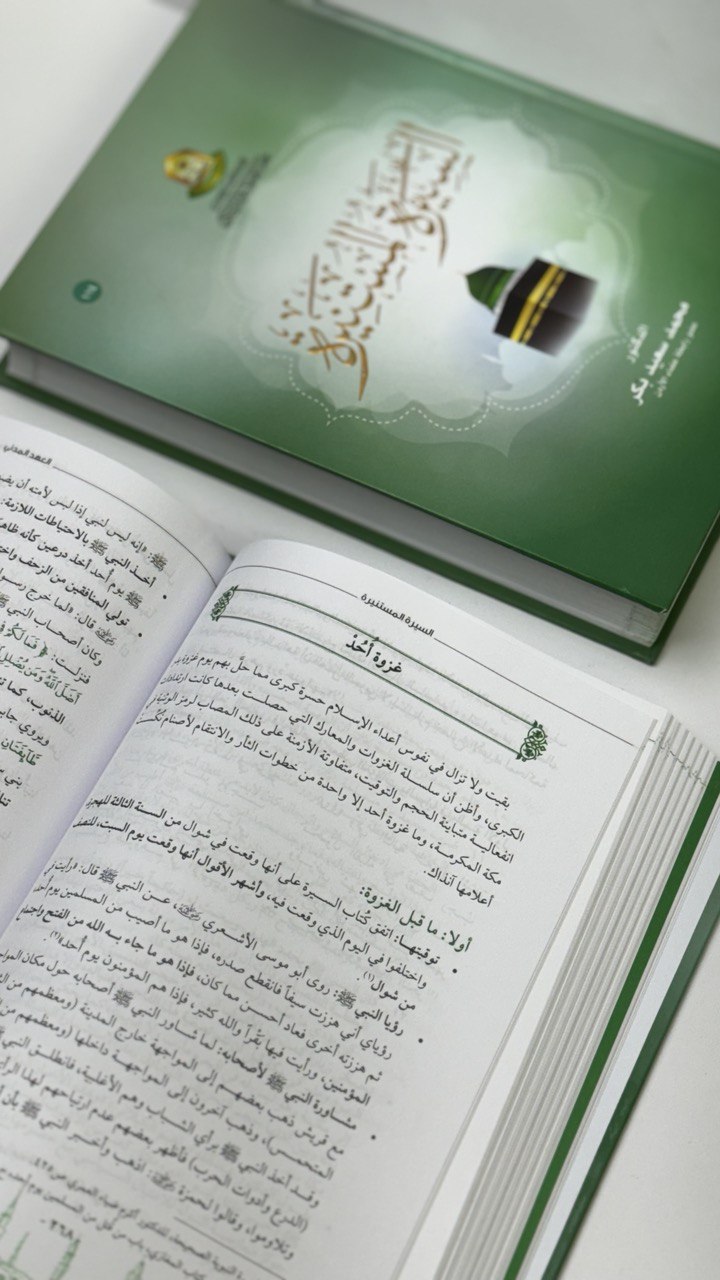 السيرة
المستنيرة
الدكتور
محمد سعيد بكر
السيرة المستنيرة
غزوة أُحُدْ
بقيت ولا تزال في نفوس أعداء الإسلام حسرة كبرى مما حلَّ بهم يوم غزوة بدر
الكبرى، وأظن أن سلسلة الغزوات والمعارك التي حصلت بعدها كانت ارتدادات
انفعالية متباينة الحجم والتوقيت، متفاوتة الأزمنة على ذلك المصاب لرمز الوثنية في
مكة المكرمة، وما غزوة أحد إلا واحدة من خطوات الثأر والانتقام لأصنام نُكِّست
أعلامها آنذاك.
أولا: ما قبل الغزوة:
• توقيتها: اتفق كُتّاب السيرة على أنها وقعت في شوال من السنة الثالثة للهجرة
واختلفوا في اليوم الذي وقعت فيه، وأشهر الأقوال أنها وقعت يوم السبت، للنصف
من شوال(١).
• رؤيا النبي ﷺ: روى أبو موسى الأشعري رضي الله عنه، عن النبي ﷺ قال: «رأيت في
رؤياي أني هززت سيفاً فانقطع صدره، فإذا هو ما أصيب من المسلمين يوم أحد
ثم هززته أخرى فعاد أحسن مما كان، فإذا هو ما جاء به الله من الفتح واجتماع
المؤمنين، ورأيت فيها بقراً والله كثير، فإذا هم المؤمنون يوم أحد»(٢).
• مشاورة النبي ﷺ لأصحابه: لما شاور النبي ﷺ أصحابه حول مكان
مع قريش ذهب بعضهم إلى المواجهة خارج المدينة (ومعظمهم من
المتحمس)، وذهب آخرون إلى المواجهة داخلها (ومعظمهم من
وقد أخذ النبي ﷺ برأي الشباب وهم الأغلبية، فانطلق النبي
(الدرع وأدوات الحرب) فأظهر بعضهم عدم ارتياحهم لهذا الرأي
وتلاوموا، وقالوا لحمزة رضي الله عنه: اذهب وأخبر النبي ﷺ بأن
العهد المدني
ﷺ: «إنه ليس لنبي إذا لبس لأمته أن
أخذ النبي ﷺ بالاحتياطات اللازمة:
ﷺ يوم أحد أخذ درعين كأنه
• تولي المنافقين من الزحف
قال: «لما خرج
وكان أصحاب النبي
فنزلت: ﴿ فَمَا لَكُمْ
أَضَلَّ اللَّهُ وَمَن يُضْلِلِ
الذنوب، كما
ويروي جابر
طَّائِفَتَانِ
بني